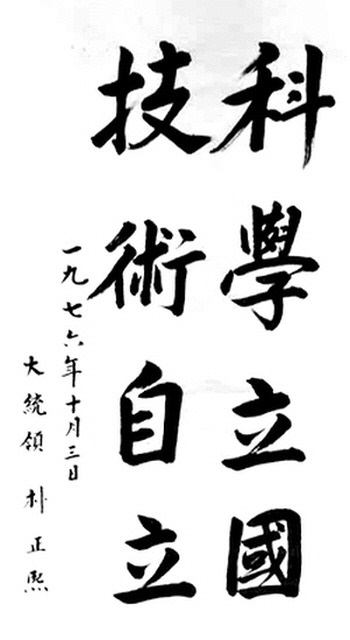 科學立國
技術自立
一九七六年十月三日
大統領 朴正熙